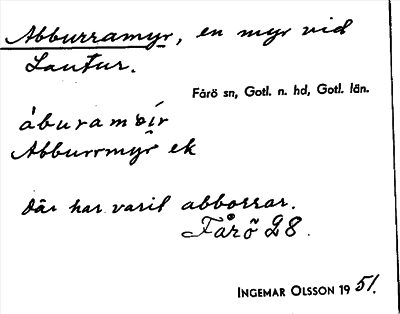 Abburramyr, en myr vid
Lautur.
Fårö sn, Gotl. n. hd, Gotl. län.
àburamøir
Abburrmyr ek
där har varit abborrar.
Fårö 28.
INGEMAR OLSSON 1951.